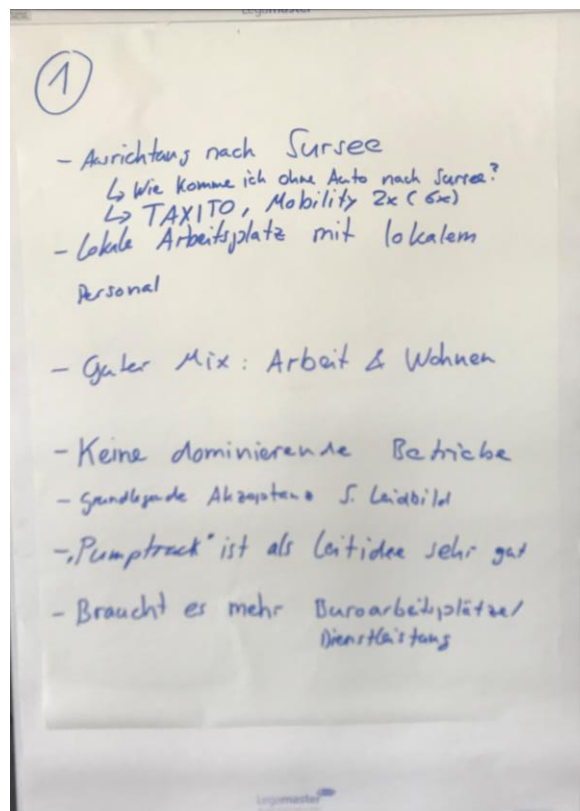 Legamaster
1
- Ausrichtung nach Sursee
↳ Wie komme ich ohne Auto nach Sursee?
↳ TAXITO, Mobility 2x (6x)
- Lokale Arbeitsplatz mit lokalem
Personal
- Guter Mix: Arbeit & Wohnen
- Keine dominierende Betriebe
- Grundlegende Akzeptanz S. Leidbild
- "Pumptrack" ist als Leitidee sehr gut
- Braucht es mehr Büroarbeitsplätze/
Dienstleistung
Legamaster